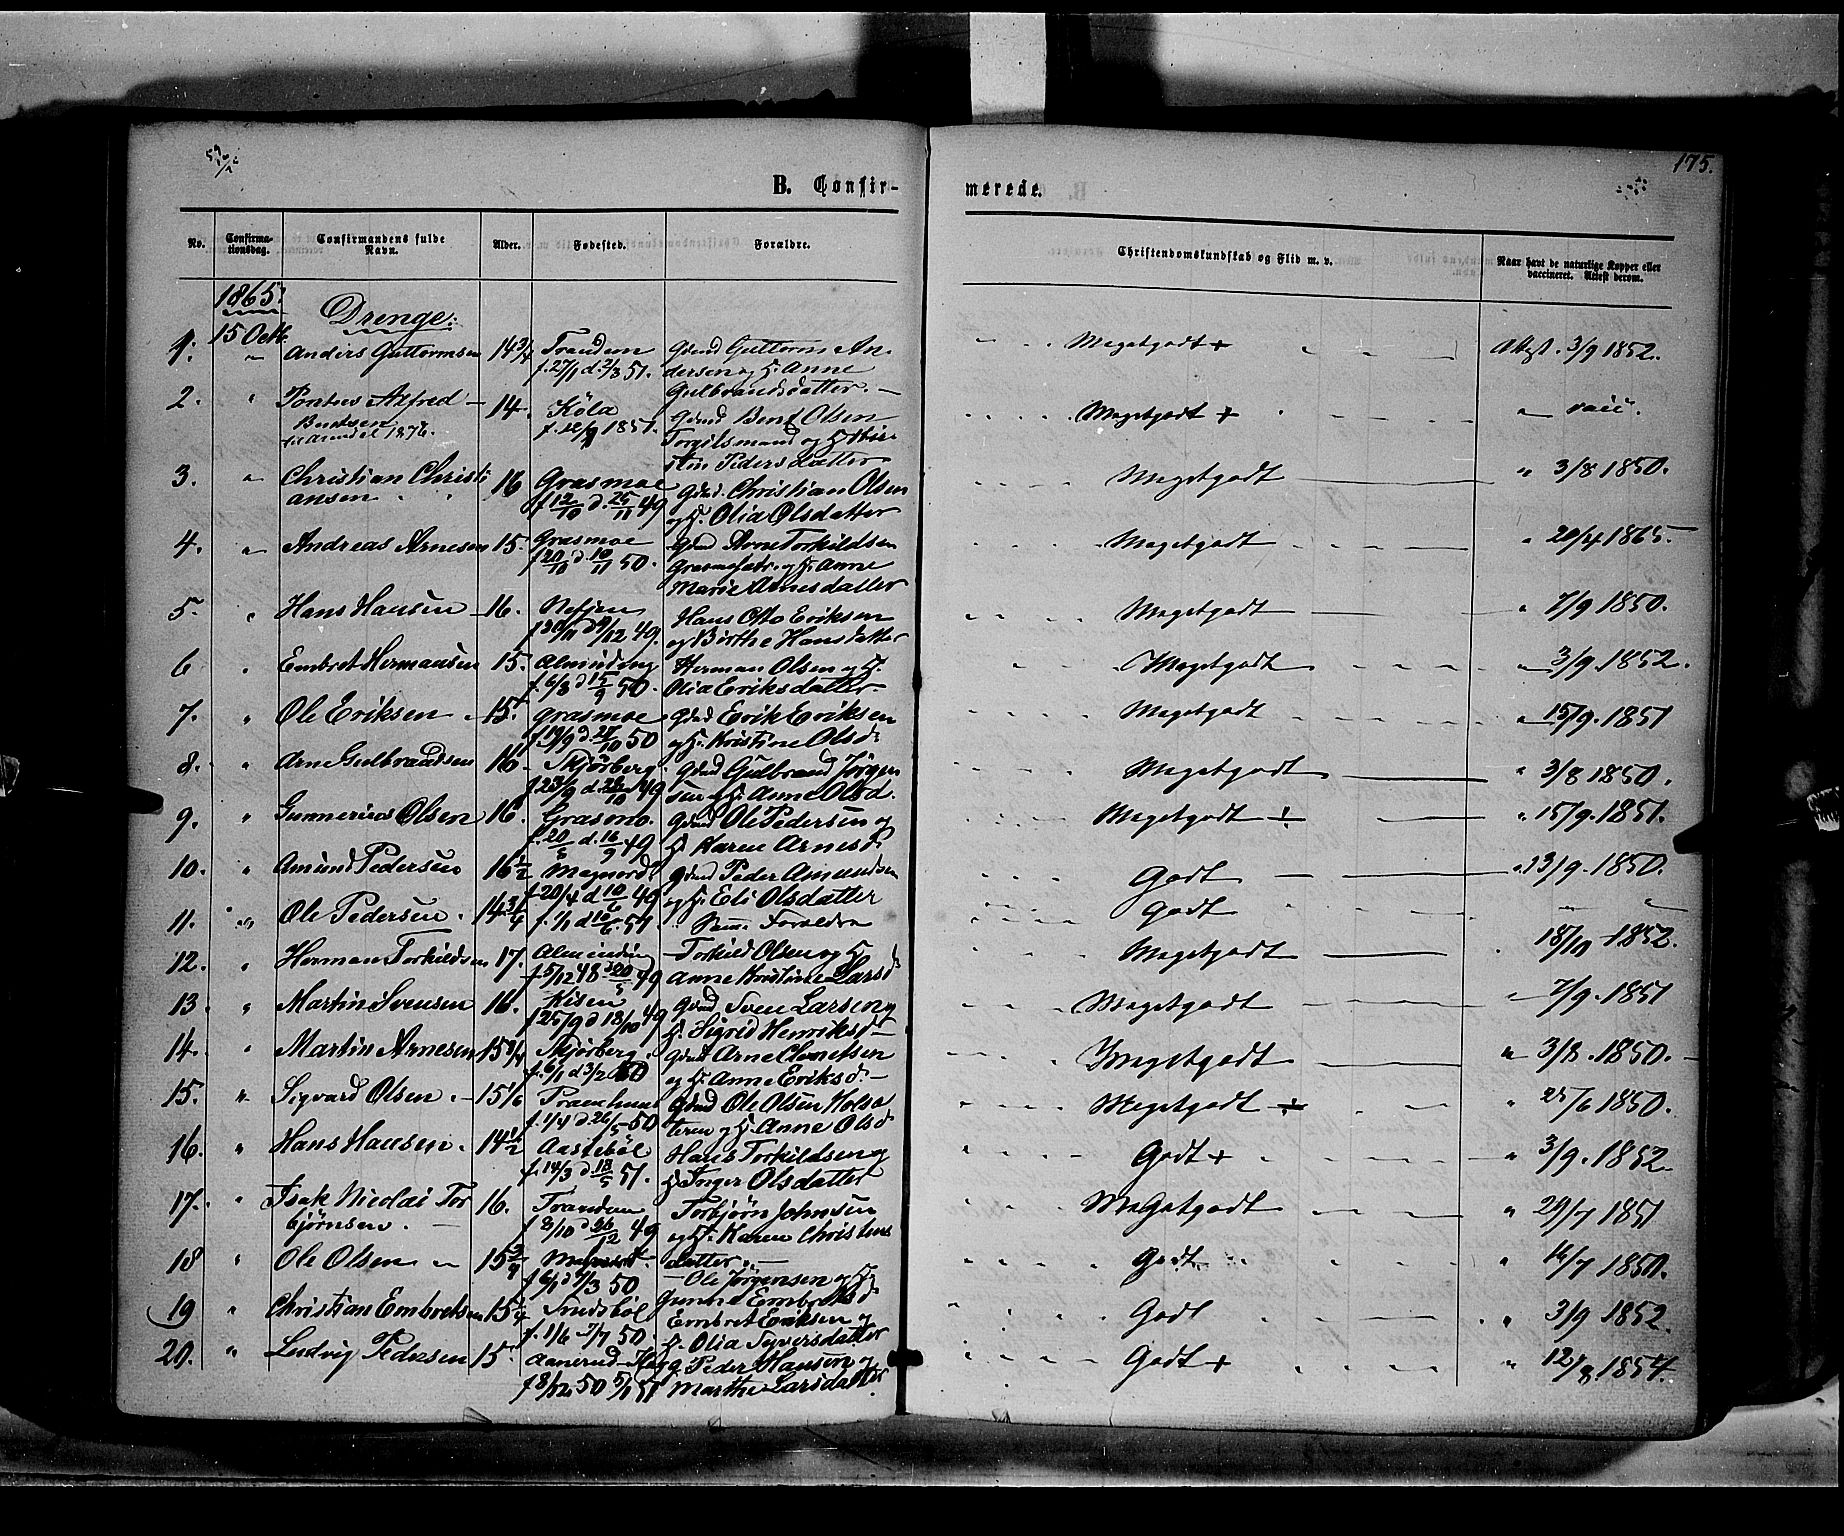 175.
B. Confir-
merede.
No.
Confirma-
tionsdag.
Confirmandens fulde
Navn.
Alder.
Fødested.
Forældre.
Christendomskundskab og Flid m. v.
Naar havt de naturlige Kopper eller
vaccineret. Attest derom.
1865.
Drenge.
15 Octb.
1. " Anders Guttormsen 14 3/4 Trandem Gdmd Guttorm An- Megetgodt + Attest. 3/9 1852.
f. 27/1 d. 2/3 51. dersen og H. Anne
Gulbrandsdatter. -
2. " Pontus Alfred 14. Köla Gdmd Bent Olsen Megetgodt + " vacc.
Bentsen f. 1851. Torgilsmand og H.
til Arendal 1876. Pedersdatter
3. " Christian Christi 16 Grasmoe Gdmd. Christian Olsen Megetgodt " 3/8 1850.
ansen. f 12/10 d. 25/11 49 og H. Olia Olsdatter
4. " Andreas Arnesen 15. Grasmoe Gdmd Arne Torkildsen Megetgodt " 20/4 1865
f 20/10 d 10/11 50. og H. Anne
Marie Arnesdatter
5. " Hans Hansen 16. Hans Otto Eriksen Megetgodt " 7/9 1850.
f 30/11 d 9/12 49. og Birthe Hansdatter
6 " Embret Hermansen 15. Alminding Herman Olsen og H. Megetgodt " 3/9. 1852.
f. 6/8 d 15/9 50. Olia Eriksdatter
7. " Ole Eriksen 15. Grasmoe Gdmd Erik Eriksen Megetgodt " 15/9. 1851
f 19/9 d. 50 og H. Kristine Olsd.
8. " Arne Gulbrandsen 16. Skjørberg Gdmd Gulbrand Jørgen Megetgodt " 3/8 1850.
f 23/9 d. 49 sen og H. Anne Olsd.
9. " Gunnerius Olsen 16. Grasmo. Gdmd Ole Pedersen og Megetgodt " 15/9. 1851.
d. 16/9 49 H. Karen Arnesd.
10. " Amund Pedersen 16 1/2 Magnord Gdmd Peder Amundsen Godt " 13/9. 1850.
f 20/4 d 10/6 49 og H. Eli Olsdatter
11. " Ole Pedersen. 14 3/4 f. 1/1 d 51 Forældre Godt
12. " Herman Torkildsen 17. Alminding Torkild Olsen og H Megetgodt 18/10 1852.
f 5/12 48 49 Anne Kristine Larsd.
13. " Martin Svensen 16. Kisen Gdmd Sven Larsen og Megetgodt " 7/9. 1851
f 25/9 d 18/10 49 H. Sigrid Henriksd.
14. " Martin Arnesen 15 3/4 Skjørberg. Gdmd Arne Clemetsen Megetgodt " 3/8. 1850.
f. 6/1 d 3/2 50 og H. Anne Eriksd.
15. " Sigvard Olsen. 15 1/6 Gdmd Ole Olsen Megetgodt " 25/6 1850.
f. 1/4 d. 26/5 50 og H. Anne Olsd
16. " Hans Hansen. 14 1/2 Aastebøl Hans Torkildsen og Godt + " 3/9. 1852.
f. 14/3 d. 18/5 51. H Inger Olsdatter
17. " Isak Nicolai Tor 16. Trandem Torbjørn Johnsen Megetgodt " 29/7 1851
bjørnsen. f 8/10 d 26/12 49 og H. Karen Christens
datter. -
18 " Ole Olsen 15 3/4 Magnord Ole Jørgensen og H Godt " 14/7 1850.
f 6/1 d 1/3 50 Gunne Embretsd
19 " Christian Embretsen 15 1/4 Embret Eriksen og Godt " 3/9 1852.
f. 1/6 7/7 50. H. Olia Syversdatter
20. " Ludvig Pedersen 15 Aanerud Peder Hansen og Godt + " 12/8. 1854.
f 8/12 50 5/1 51 Marthe Larsdatter